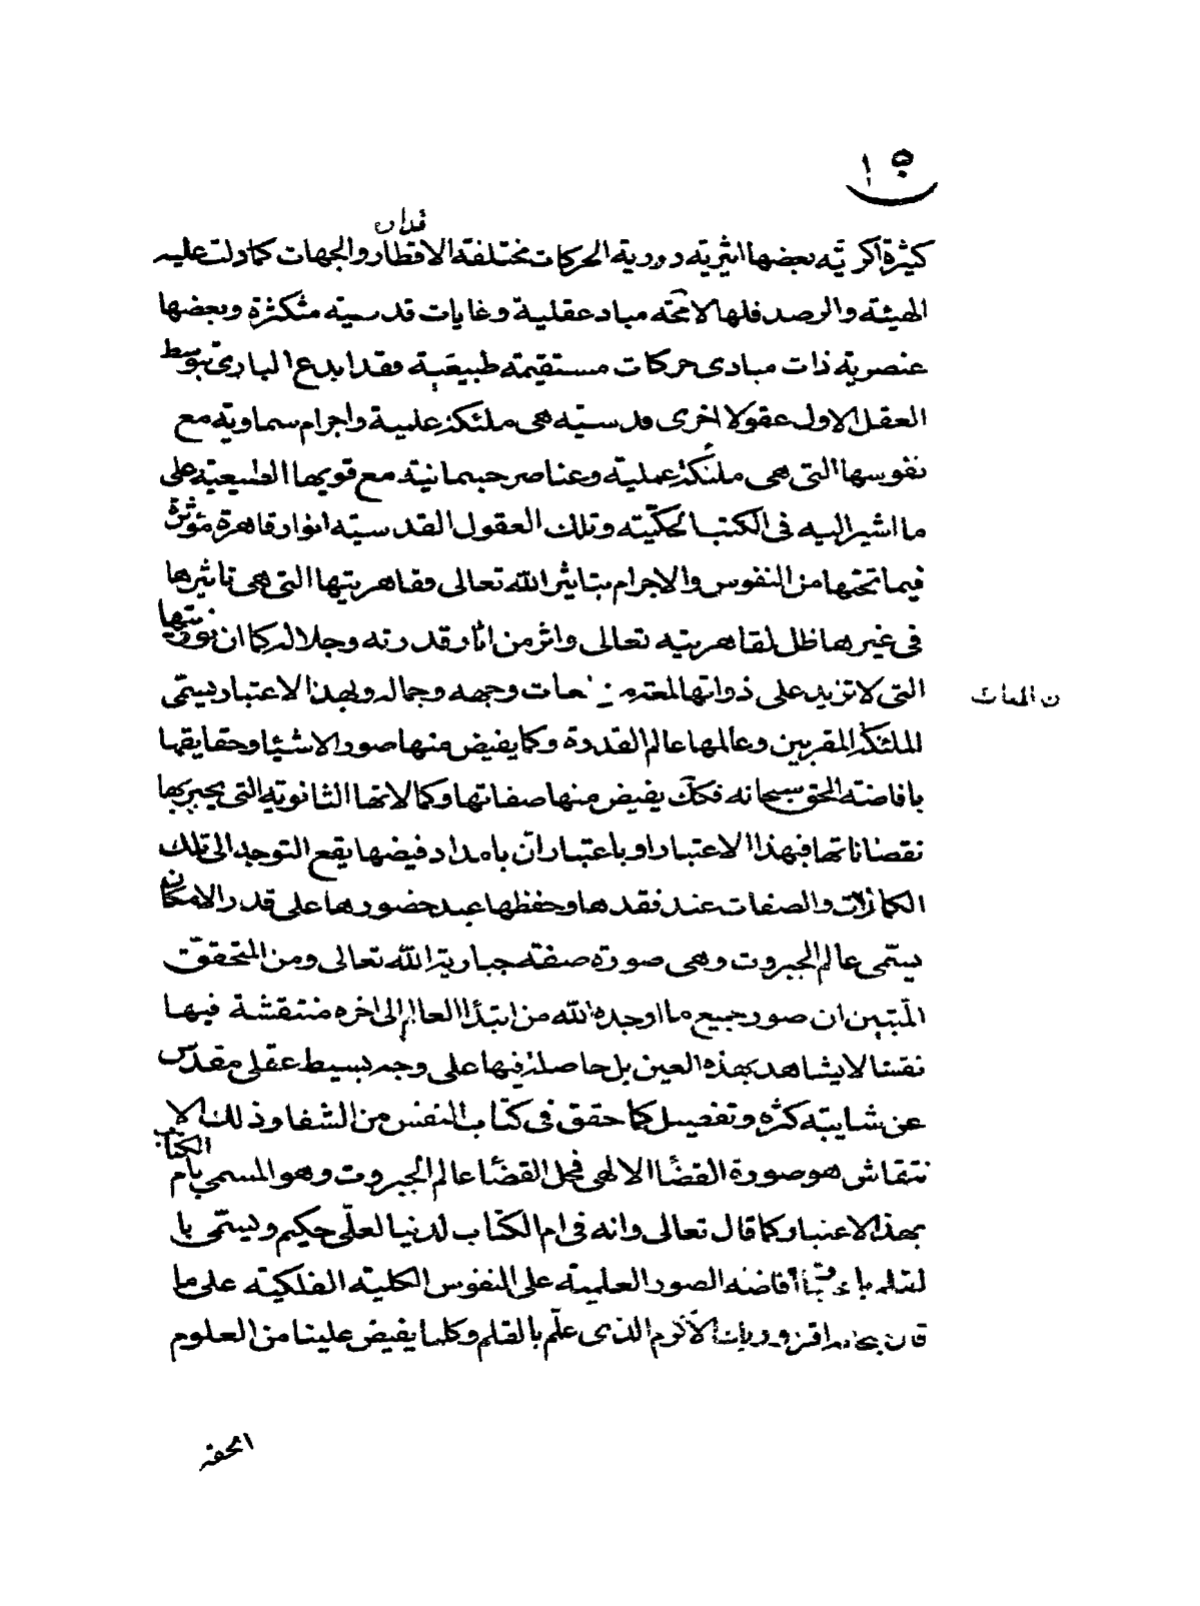 ١٥
كثيرة اكريّه بعضها اثيريّه دورية الحركات مختلفة الاقطار والجهات كما دلت عليه
الهيئة والرصد فلها لامحّه مباد عقلية وغايات قدسيّه متكثرة وبعضها
عنصرية ذات مبادى حركات مستقيمة طبيعية فقد ابدع البارى بتوسط
العقل الاول عقولا اخرى قدسيّه هى ملئكة علمية واجرام سماوية مع
نفوسها التى هى ملئكة عملية وعناصر جسمانية مع قويها الطبيعية على
ما اشير اليه فى الكتب الحكميّه وتلك العقول القدسيّه انوار قاهرة مؤثرة
فيما تحتها من النفوس والاجرام بتاثير الله تعالى فقاهريتها التى هى تاثيرها
فى غيرها ظل لقاهريته تعالى واثر من اثار قدرته وجلاله كما ان نوريتها
التى لا تزيد على ذواتها لمعة من لمعات وجهه وجماله وبهذا الاعتبار يسمّى
ن اللمعات
الملئكة المقربين وعالمها عالم القدرة وكما يفيض منها صور الاشيا وحقايقها
بافاضة الحق سبحانه فكك يفيض منها صفاتها وكمالاتها الثانوية التى يجبر بها
نقصاناتها فبهذا الاعتبار او باعتبار انّ بامداد فيضها يقع التوجه الى تلك
الكمالات والصفات عند فقدها وحفظها عند حضورها على قدر الامكان
يسمّى عالم الجبروت وهى صورة صفة جبارية الله تعالى ومن المتحقق
المتبين ان صور جميع ما اوجده الله من ابتدا العالم الى اخره منتقشة فيها
نقشا لا يشاهد بهذه العين بل حاصلة فيها على وجه بسيط عقلى مقدس
عن شايبة كثرة وتفصيل كما حقق فى كتاب النفس من الشفا وذلك الا
نتقاش هو صورة القضا الالهى فمحل القضا عالم الجبروت وهو المسمى بام الكتاب
بهذا الاعتبار كما قال تعالى وانه فى ام الكتاب لدينا لعلّى حكيم ويسمّى با
لقلم باعتبار افاضة الصور العلمية على النفوس الكلية الفلكية على ما
قال سبحانه اقرء وربك الاكرم الذى علّم بالقلم وكلما يفيض علينا من العلوم
الحقة